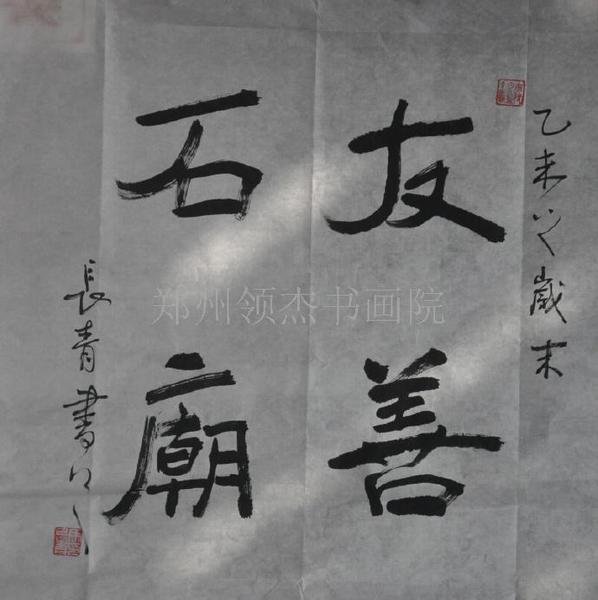 乙未之歲末
友善
石廟
長青書
郑州领杰书画院